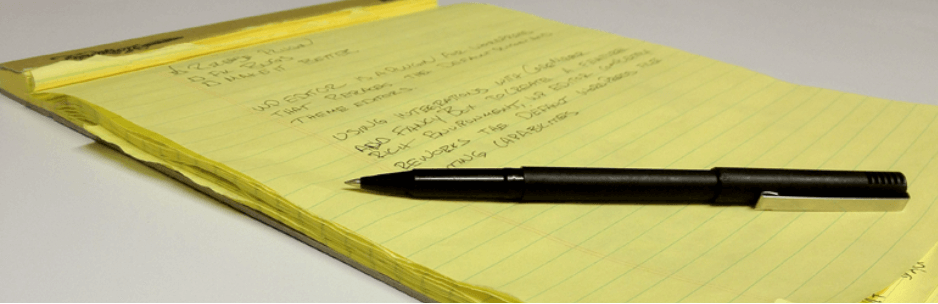 FIX BUGS
MAKE IT BETTER
WP EDITOR IS A PLUGIN FOR WORDPRESS
THAT REPLACES THE DEFAULT PLUGIN AND
THEME EDITORS.
USING INTEGRATIONS WITH CODEMIRROR
AND FANCYBOX TO CREATE A FEATURE
RICH ENVIRONMENT, WP EDITOR COMPLETELY
REWORKS THE DEFAULT WORDPRESS FILE
EDITING CAPABILITIES